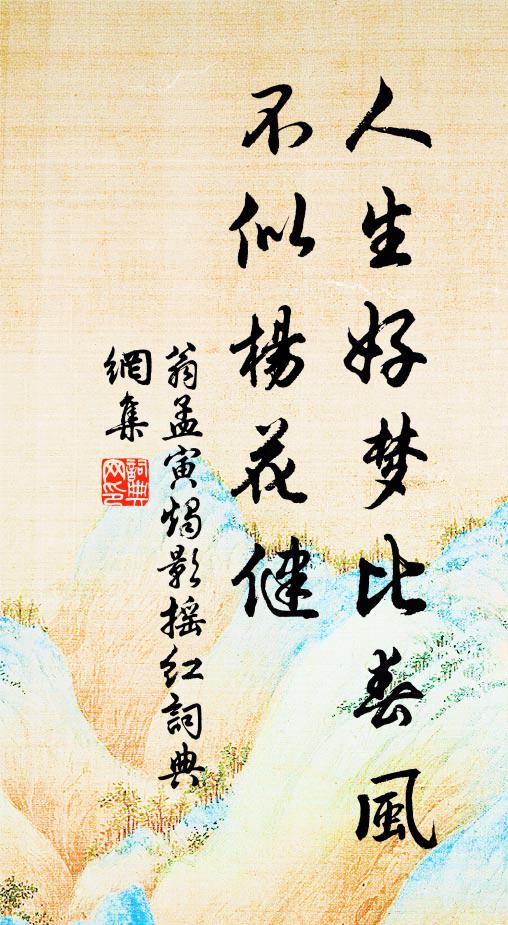 人生好梦比春風
不似楊花健
翁孟寅燭影摇红詞典
網集
詞典
网印